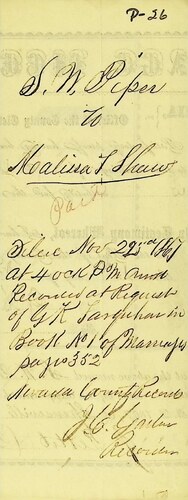 P-26
S. W. Piper
to
Malina F. Shaw
Paid
Filed Nov 22nd 1867
at 4 ock P.M. and
Recorded at Request
of G K Farquhar in
Book No 1 of Marriages
page 352
Nevada County Records
Recorder